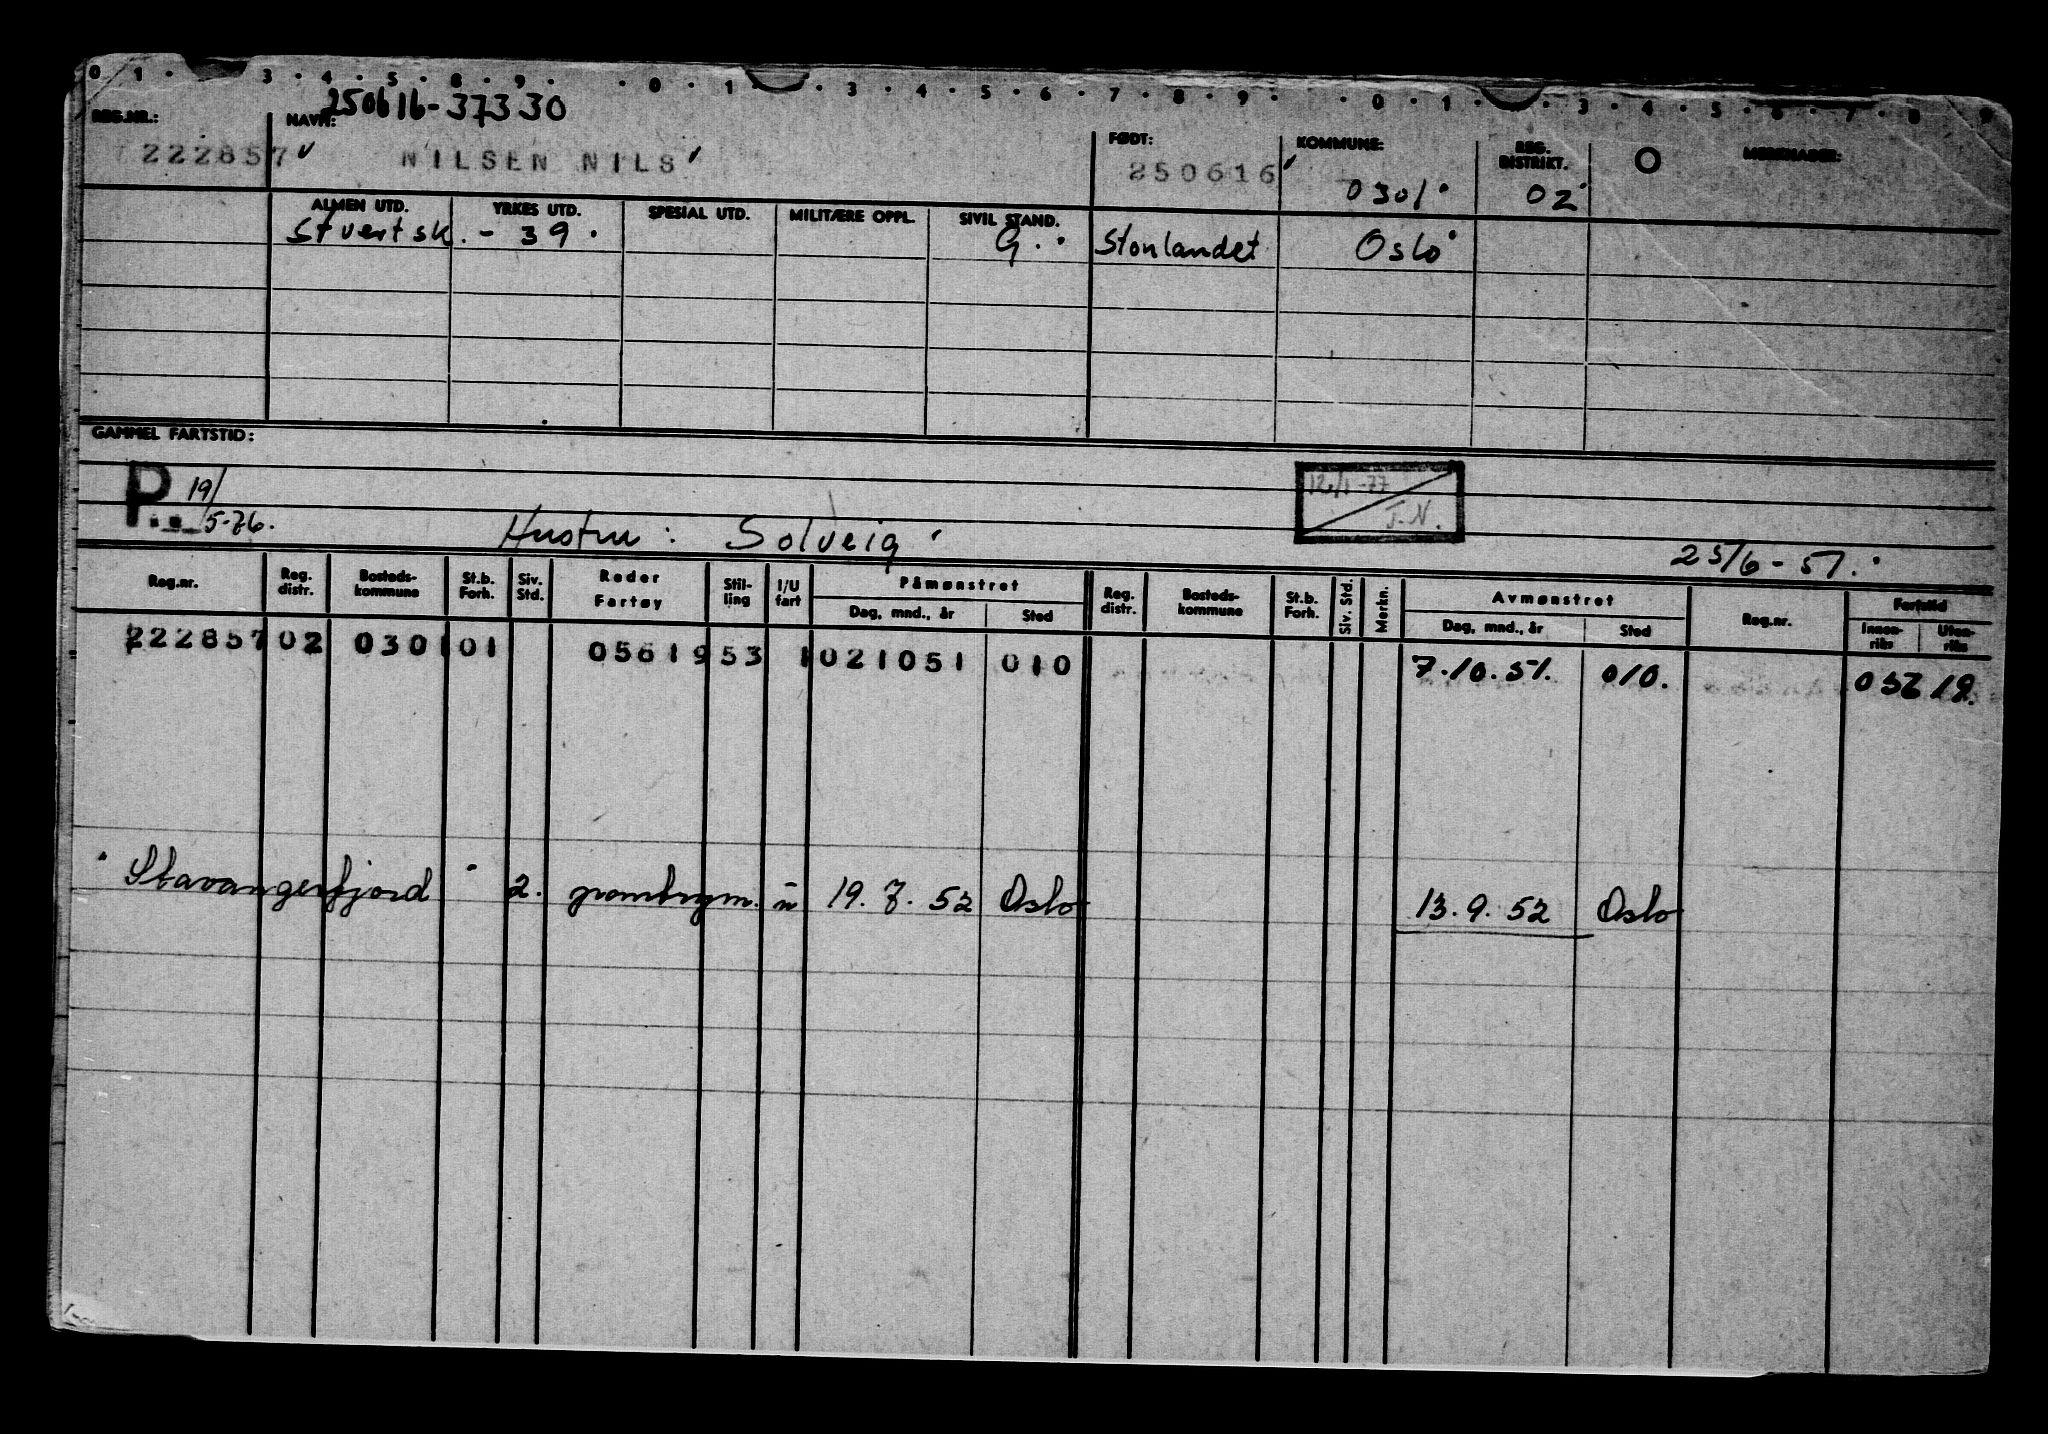 0 1 . 3 . 4 . 5 . 8 . 9 . . 0 . 1 . . 3 . 4 . 5 . 6 . 7 . 8 . 9 . . 0 . 1 . . 3 . 4 . 5 . 6 . 7 . 8 9
250616-37330
REG.NR.: NAVN: FØDT: KOMMUNE: REG. DISTRIKT. O MERKNADER:
222857 NILSEN NILS 250616 0301 02
ALMEN UTD. YRKES UTD. SPESIAL UTD. MILITÆRE OPPL. SIVIL STAND.
Stuertsk. - 39. G. Stonlandet Oslo
GAMMEL FARTSTID:
P 19/5-76. 12/1-77 J.N.
Hustru: Solveig 25/6-51.
Reg.nr. Reg. distr. Bosteds-kommune St.b. Forh. Siv. Std. Reder Fartøy Stil-ling I/U fart Påmønstret Reg. distr. Bosteds-kommune St.b. Forh. Siv. Std. Merkn. Avmønstret Reg.nr. Fartstid
Dag, mnd., år Sted Dag, mnd., år Sted Innen-riks Uten-riks
222857 02 0301 01 05619 53 1 021051 010 7.10.51. 010.
"Stavangerfjord" 2. u 19.7.52 Oslo 13.9.52 Oslo